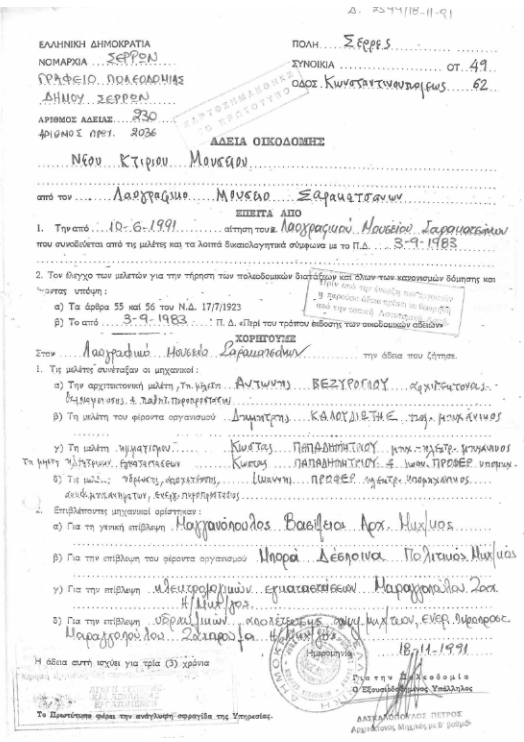 Δ. 2544/18-11-91
ΕΛΛΗΝΙΚΗ ΔΗΜΟΚΡΑΤΙΑ
ΝΟΜΑΡΧΙΑ ΣΕΡΡΩΝ
ΓΡΑΦΕΙΟ ΠΟΛΕΟΔΟΜΙΑΣ
ΔΗΜΟΥ ΣΕΡΡΩΝ
ΑΡΙΘΜΟΣ ΑΔΕΙΑΣ 230
ΑΡΙΘΜΟΣ ΠΡΩΤ. 2036
ΠΟΛΗ Σέρρες
ΣΥΝΟΙΚΙΑ ΟΤ 49
ΟΔΟΣ Κωνσταντινουπόλεως 62
ΧΑΡΤΟΣΗΜΑΝΘΗΚΕ
ΤΟ ΠΡΩΤΟΤΥΠΟ
ΑΔΕΙΑ ΟΙΚΟΔΟΜΗΣ
Νέου Κτιρίου Μουσείου
από τον Λαογραφικό Μουσείο Σαρακατσάνων
ΕΠΕΙΤΑ ΑΠΟ
1. Την από 10-6-1991 αίτηση του Λαογραφικού Μουσείου Σαρακατσάνων
που συνοδεύεται από τις μελέτες και τα λοιπά δικαιολογητικά σύμφωνα με το Π.Δ. 3-9-1983
2. Τον έλεγχο των μελετών για την τήρηση των πολεοδομικών διατάξεων και όλων των κανονισμών δόμησης και
έχοντας υπόψη :
Πριν από την έναξη των εργασιών
η παρούσα άδεια πρέπει να θεωρηθεί
από την τοπική Αστυνομική Αρχή
α) Τα άρθρα 55 και 56 του Ν.Δ. 17/7/1923
β) Το από 3-9-1983 Π. Δ. «Περί του τρόπου έκδοσης των οικοδομικών αδειών»
ΧΟΡΗΓΟΥΜΕ
Στον Λαογραφικό Μουσείο Σαρακατσάνων την άδεια που ζήτησε.
1. Τις μελέτες συνέταξαν οι μηχανικοί :
α) Την αρχιτεκτονική μελέτη, Τη μελέτη Αντώνης ΒΕΖΥΡΟΓΛΟΥ αρχιτέκτονας
β) Τη μελέτη του φέροντα οργανισμού Δημήτρης ΚΑΛΟΥΔΙΩΤΗΣ πολ. μηχανικος
γ) Τη μελέτη κλιματισμού Κώστας ΠΑΠΑΔΗΜΗΤΡΙΟΥ μηχ.-ηλεκτρ. μηχανικος
Τη μελέτη ηλεκτρικών εγκαταστάσεων Κώστας ΠΑΠΑΔΗΜΗΤΡΙΟΥ & Ιωαν. ΠΡΟΦΕΡ υπομηχ.
δ) Τις μελέτ. ύδρευσης, αποχέτευσης, Ιωάννης ΠΡΟΦΕΡ ηλεκτρ. υπομηχανικος
2. Επιβλέποντες μηχανικοί ορίστηκαν :
α) Για τη γενική επίβλεψη Μαγγανόπουλος Βασίλειος Αρχ. Μηχ/κος
β) Για την επίβλεψη του φέροντα οργανισμού Μπορά Δέσποινα Πολιτικός Μηχ/κός
γ) Για την επίβλεψη ηλεκτρολογικών εγκαταστάσεων Μαραγγοπούλου
Η/Μηχ/γος
δ) Για την επίβλεψη υδραυλικών αποχέτευσης
Μαραγγοπούλου
Ημερομηνία 18-11-1991
Η άδεια αυτή ισχύει για τρία (3) χρόνια
Για την Πολεοδομία
Ο Εξουσιοδοτημένος Υπάλληλος
ΔΑΣΚΑΛΟΠΟΥΛΟΣ ΠΕΤΡΟΣ
Αρχιτέκτονας Μηχ/κός με Β' βαθμό
Το Πρωτότυπο φέρει την ανάγλυφη σφραγίδα της Υπηρεσίας.